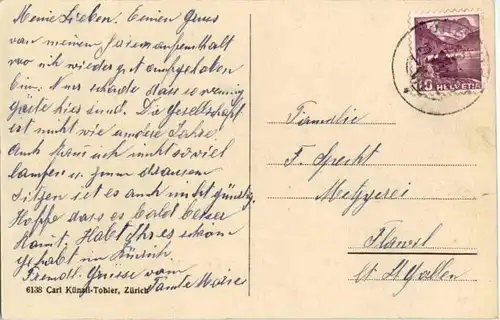 Meine Lieben. Einen Gruss
von meinem Ferienaufenthalt
wo ich wieder gut aufgehoben
bin. Nur schade dass so wenig
Gäste hier sind. Die Gesellschaft
ist nicht wie andere Jahre.
Auch kann ich nicht so viel
laufen u. zum draussen
sitzen ist es auch nicht günstig.
Hoffe dass es bald besser
kommt. Habt Ihr es schön
gehabt in Zürich.
Freundl. Grüsse von
Tante Marie
6138 Carl Künzli-Tobler, Zürich
HELVETIA
Familie
F. Specht
Metzgerei
Flawil
Ct. St. Gallen